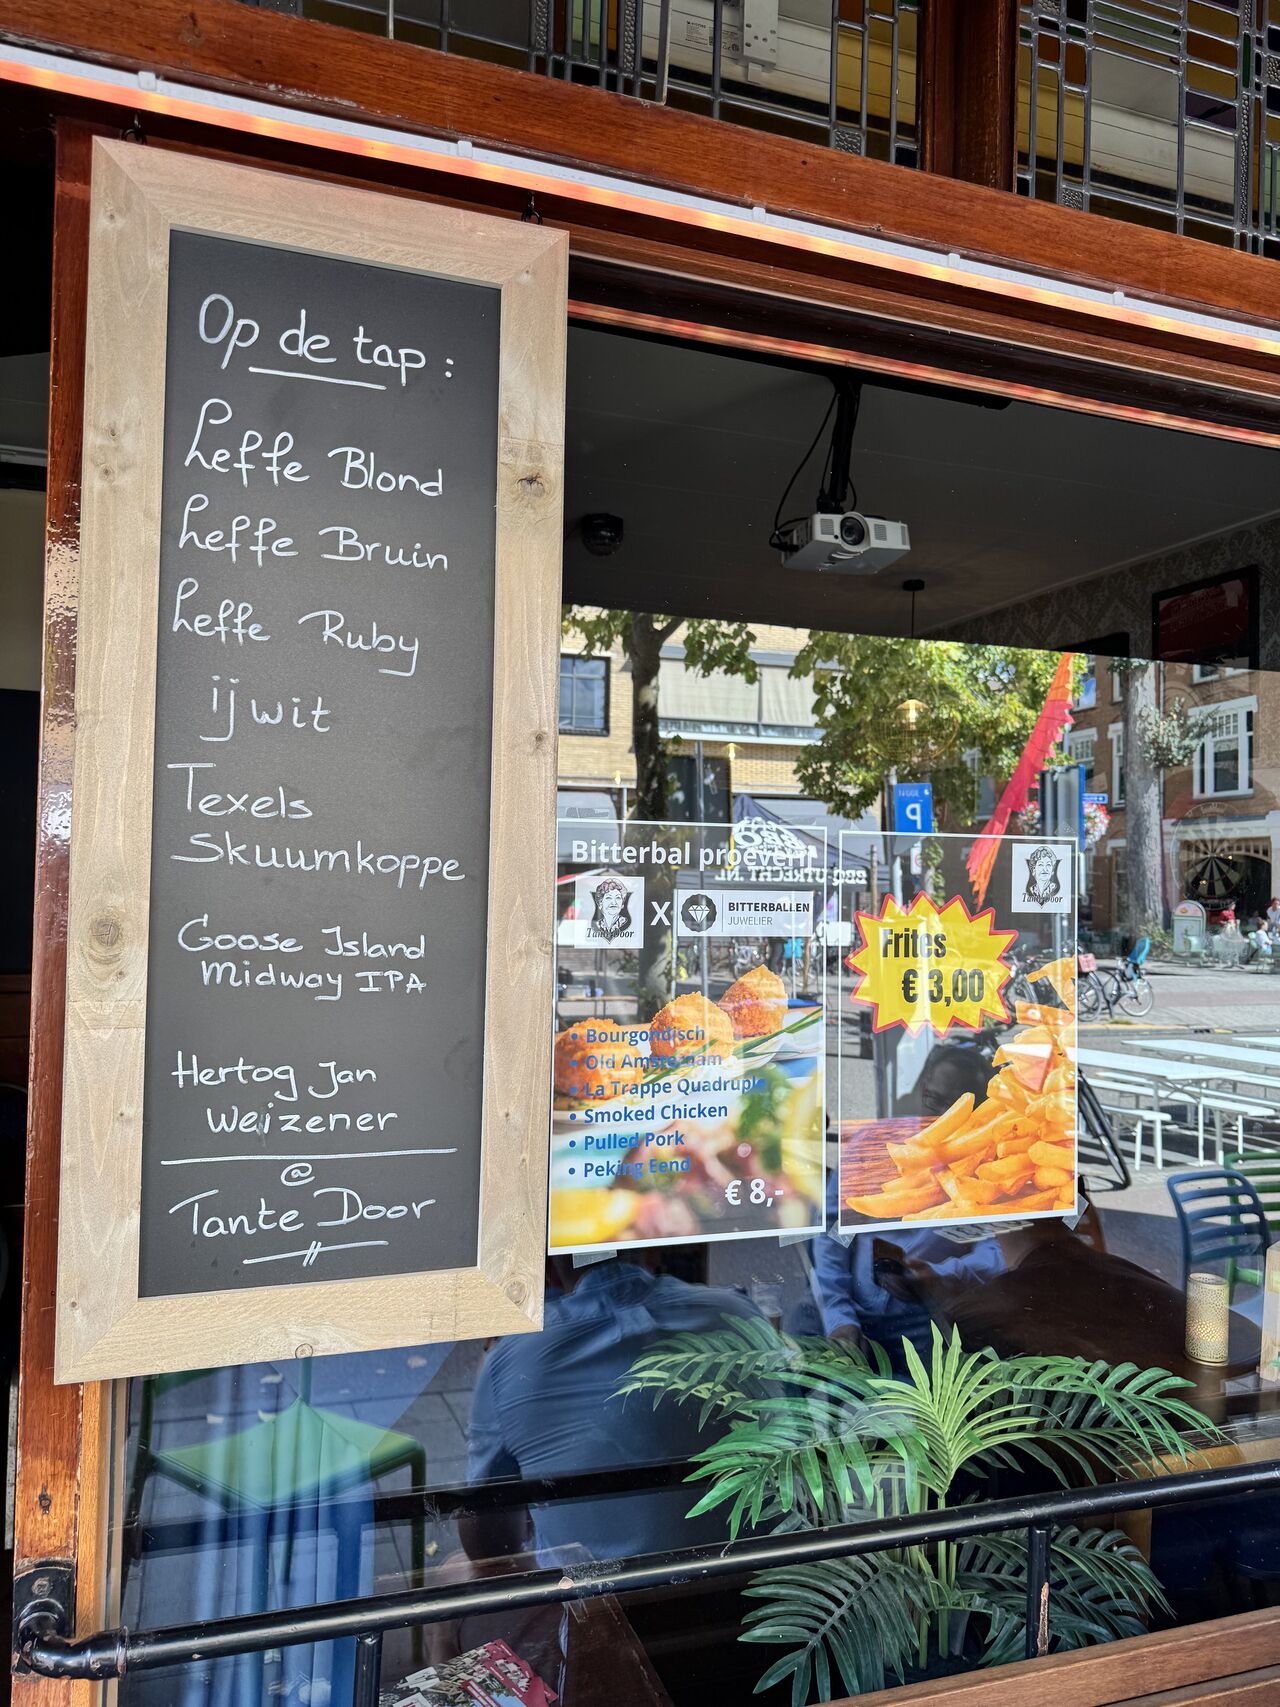 Op de tap :
Leffe Blond
Leffe Bruin
Leffe Ruby
ij wit
Texels
Skuumkoppe
Goose Island
Midway IPA
Hertog Jan
Weizener
@
Tante Door
Bitterbal proeverij
Tante Door
X
BITTERBALLEN
JUWELIER
• Bourgondisch
• Old Amsterdam
• La Trappe Quadruple
• Smoked Chicken
• Pulled Pork
• Peking Eend
€ 8,-
Tante Door
Frites
€ 3,00
P